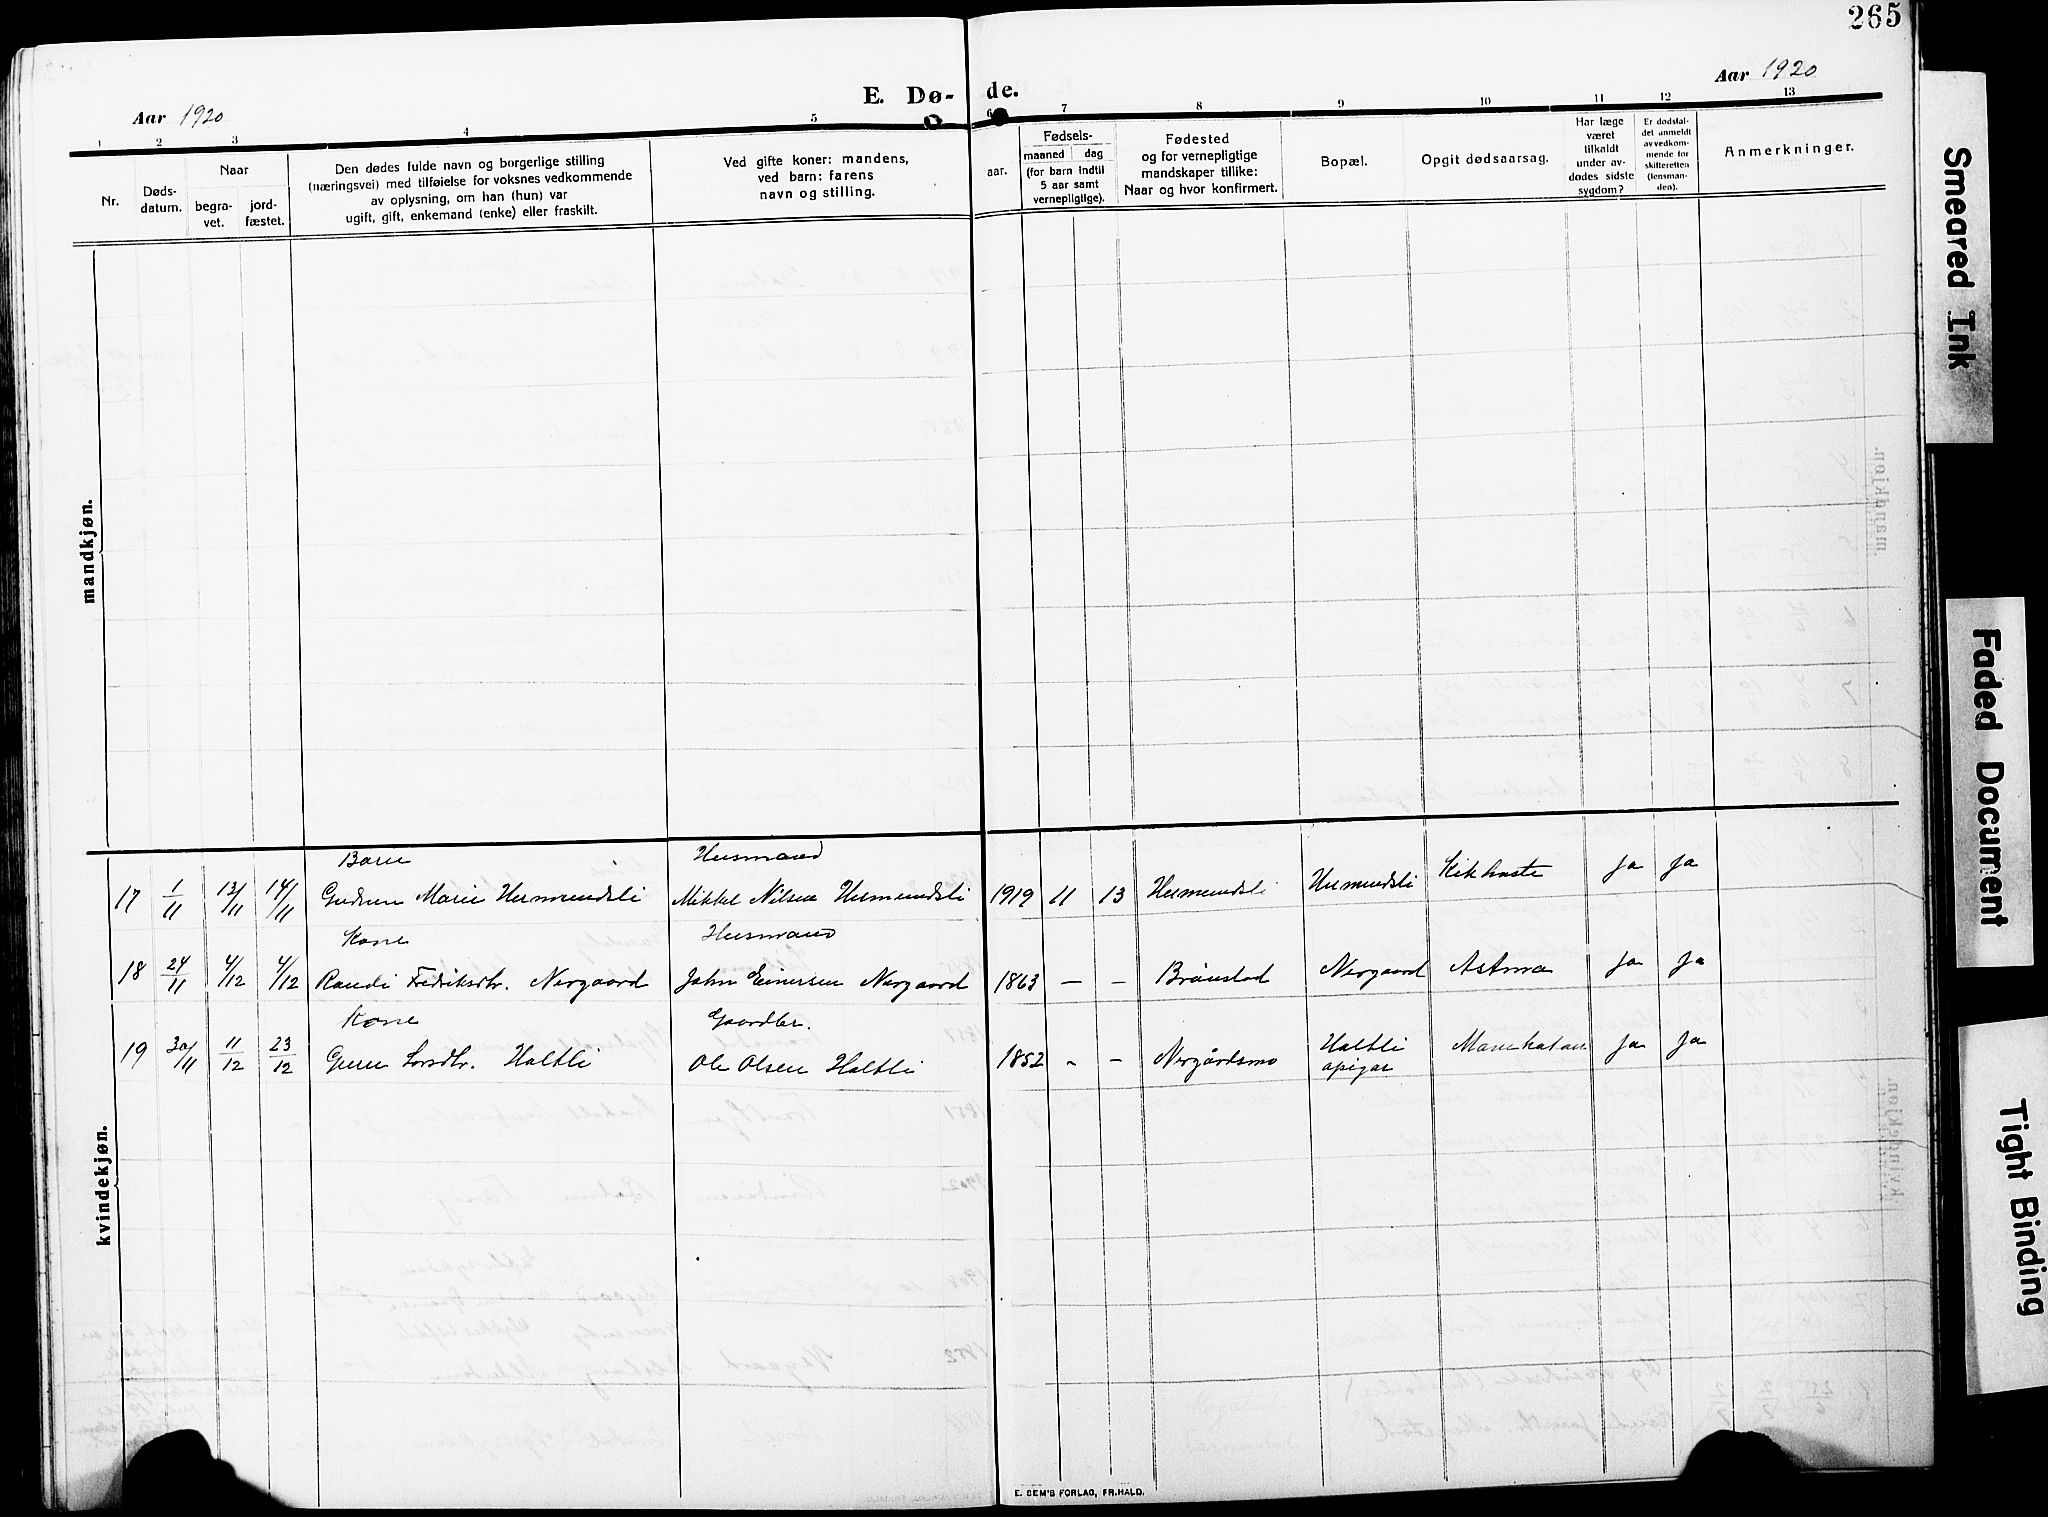 265
E. Dø- de.
Aar 1920
Aar 1920
1 2 3 4 5 6 7 8 9 10 11 12 13
Nr.
Døds-
datum.
Naar
begra-
vet.
jord-
fæstet.
Den dødes fulde navn og borgerlige stilling
(næringsvei) med tilføielse for voksnes vedkommende
av oplysning, om han (hun) var
ugift, gift, enkemand (enke) eller fraskilt.
Ved gifte koner: mandens,
ved barn: farens
navn og stilling.
aar.
Fødsels-
maaned dag
(for barn indtil
5 aar samt
vernepligtige).
Fødested
og for vernepligtige
mandskaper tillike:
Naar og hvor konfirmert.
Bopæl.
Opgit dødsaarsag.
Har læge
været
tilkaldt
under av-
dødes sidste
sygdom?
Er dødsfal-
det anmeldt
av vedkom-
mende for
skifteretten
(lensman-
den).
Anmerkninger.
mandkjøn.
kvindekjøn.
Barn Husmand
17 1/11 13/11 14/11 Gudrun Marie Hermundsli Mikkel Nilsen Hermundsli 1919 11 13 Hermundsli Hermundsli Kikhoste Ja Ja
Kone Husmand
18 24/11 4/12 4/12 Randi Fredriksdtr. Nergaard John Einersen Nergaard 1863 — – Brønstad Nergaard Astma Ja Ja
Kone Gaardbr.
19 30/11 11/12 23/12 Guru Larsdtr. Haltli Ole Olsen Haltli 1852 - – Nergårdsmo Haltli Ja Ja
E. SEM'S FORLAG, FR.HALD.
Smeared Ink
Faded Document
Tight Binding